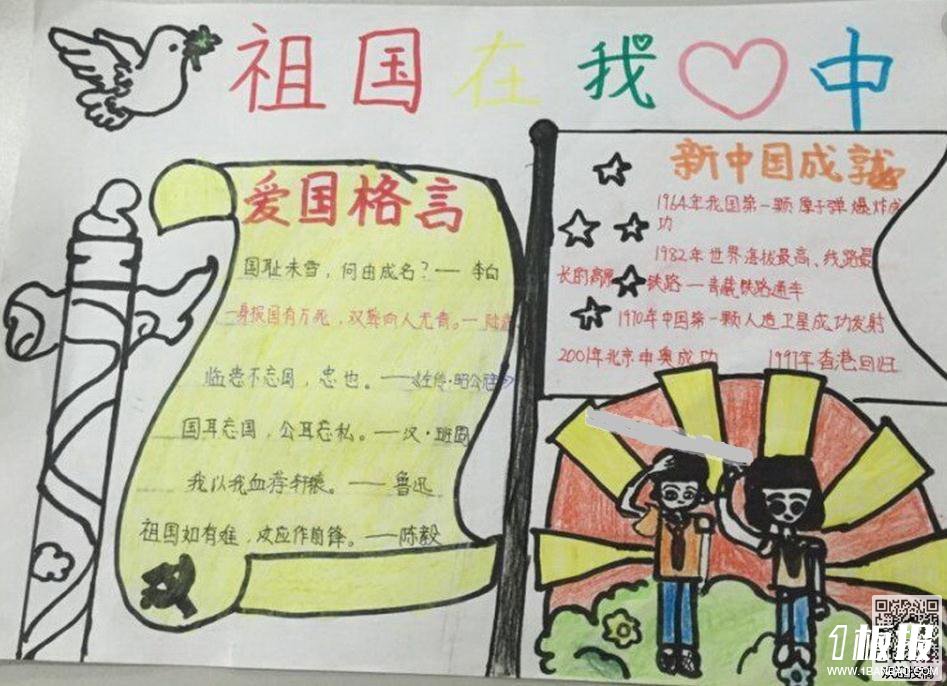 祖国在我中
爱国格言
国耻未雪，何由成名？——李白
一身报国有万死，双鬓向人无青。—陆游
临患不忘国，忠也。——《左传·昭公元年》
国耳忘国，公耳忘私。——汉·班固
我以我血荐轩辕。——鲁迅
祖国如有难，汝应作前锋。——陈毅
新中国成就
1964年我国第一颗原子弹爆炸成
功
1982年世界海拔最高、线路最
长的高原铁路—青藏铁路通车
1970年中国第一颗人造卫星成功发射
2001年北京申奥成功 1997年香港回归
1板报
WWW.1BANBAO.COM